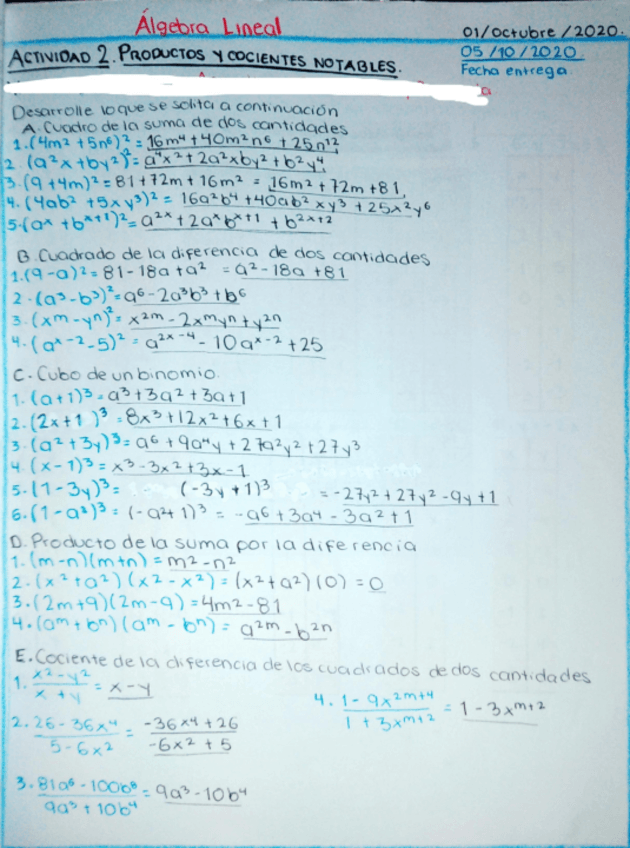 Álgebra Lineal
01/octubre/2020.
ACTIVIDAD 2. PRODUCTOS Y COCIENTES NOTABLES.
05/10/2020
Fecha entrega.
Desarrolle lo que se solita a continuación
A. Cuadro de la suma de dos cantidades
1. (4m² + 5n⁶)² = 16m⁴ + 40m²n⁶ + 25n¹²
2. (a²x + by²)² = a⁴x² + 2a²xby² + b²y⁴
3. (9 + 4m)² = 81 + 72m + 16m² = 16m² + 72m + 81.
4. (4ab² + 5xy³)² = 16a²b⁴ + 40ab²xy³ + 25x²y⁶
5. (aˣ + bˣ⁺¹)² = a²ˣ + 2aˣbˣ⁺¹ + b²ˣ⁺²
B. Cuadrado de la diferencia de dos cantidades
1. (9 - a)² = 81 - 18a + a² = a² - 18a + 81
2. (a³ - b³)² = a⁶ - 2a³b³ + b⁶
3. (xᵐ - yⁿ)² = x²ᵐ - 2xᵐyⁿ + y²ⁿ
4. (aˣ⁻² - 5)² = a²ˣ⁻⁴ - 10aˣ⁻² + 25
C. Cubo de un binomio.
1. (a + 1)³ = a³ + 3a² + 3a + 1
2. (2x + 1)³ = 8x³ + 12x² + 6x + 1
3. (a² + 3y)³ = a⁶ + 9a⁴y + 27a²y² + 27y³
4. (x - 1)³ = x³ - 3x² + 3x - 1
5. (1 - 3y)³ = (-3y + 1)³ = -27y² + 27y² - 9y + 1
6. (1 - a²)³ = (-a² + 1)³ = -a⁶ + 3a⁴ - 3a² + 1
D. Producto de la suma por la diferencia
1. (m - n)(m + n) = m² - n²
2. (x² + a²)(x² - x²) = (x² + a²)(0) = 0
3. (2m + 9)(2m - 9) = 4m² - 81
4. (aᵐ + bⁿ)(aᵐ - bⁿ) = a²ᵐ - b²ⁿ
E. Cociente de la diferencia de los cuadrados de dos cantidades
1. x² - y² / x + y = x - y
4. 1 - 9x²ᵐ⁺⁴ / 1 + 3xᵐ⁺² = 1 - 3xᵐ⁺²
2. 26 - 36x⁴ / 5 - 6x² = -36x⁴ + 26 / -6x² + 5
3. 81a⁶ - 100b⁸ / 9a³ + 10b⁴ = 9a³ - 10b⁴